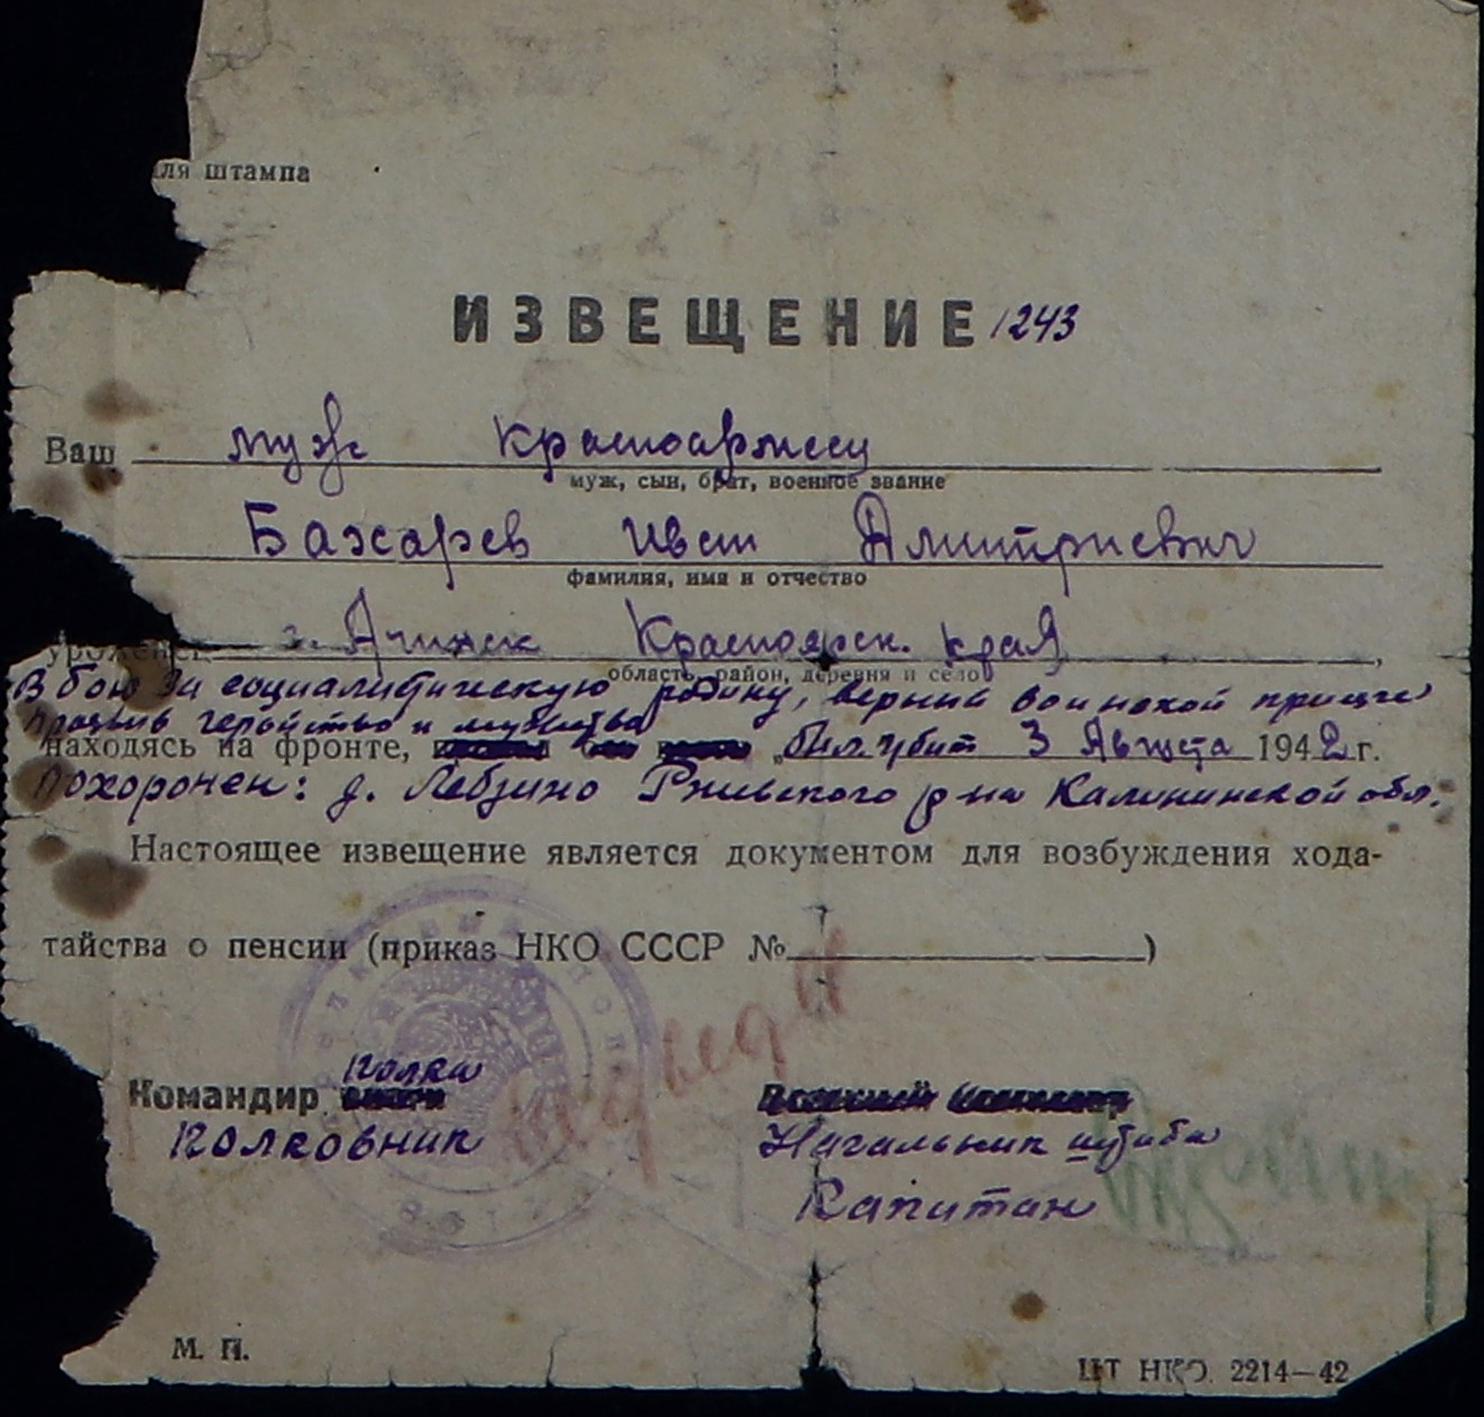 для штампа
ИЗВЕЩЕНИЕ 1243
Ваш муж красноармеец
муж, сын, брат, военное звание
Бахарев Иван Дмитриевич
фамилия, имя и отчество
уроженец г. Ачинск Красноярск. края,
область, район, деревня и село
В бою за социалистическую родину, верный воинской присяге
проявив геройство и мужество
находясь на фронте, был убит 3 Августа 1942 г.
Похоронен: д. Лебзино Ржевского р-на Калининской обл.
Настоящее извещение является документом для возбуждения хода-
тайства о пенсии (приказ НКО СССР № )
полка
Командир
Полковник
Начальник штаба
Капитан
М. П.
ЦТ НКО. 2214—42